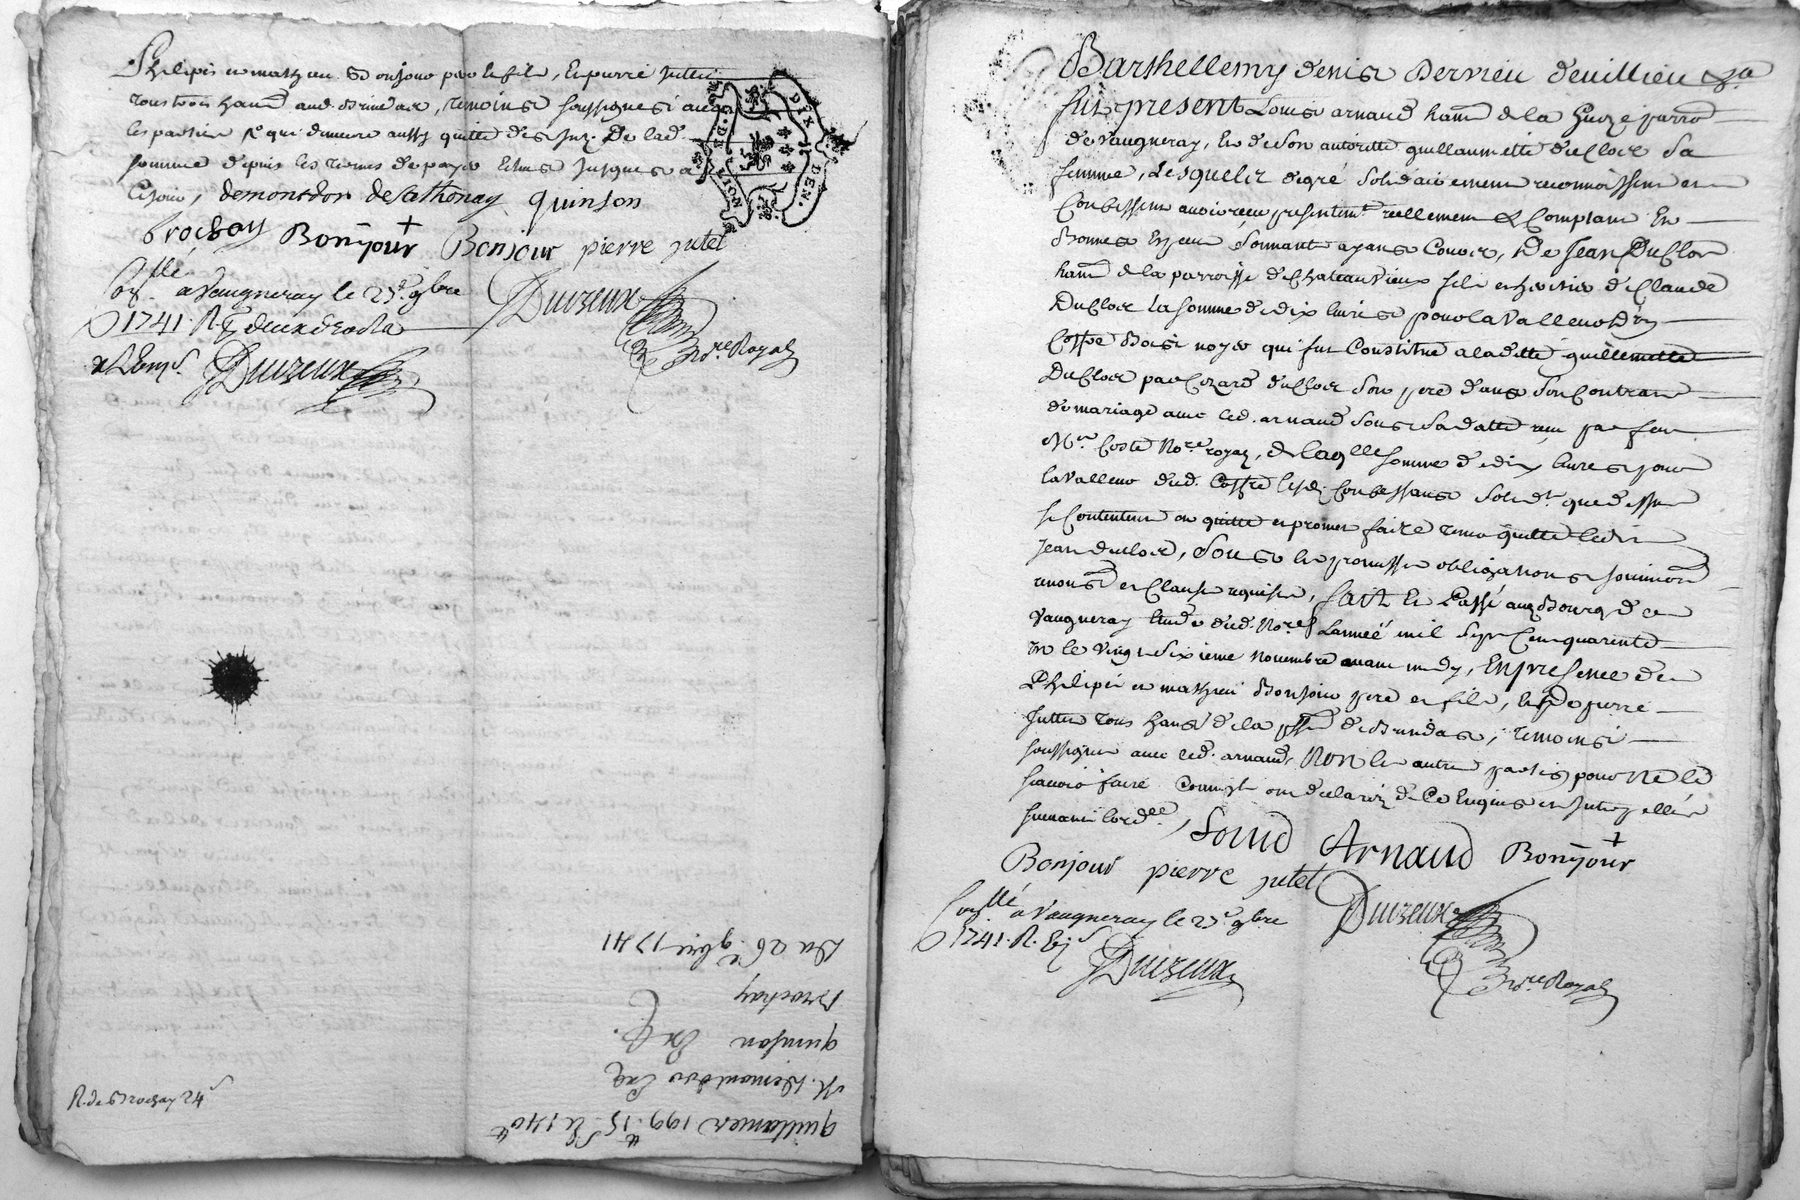 Philipes et mathieu Bonjour pere et fils, et pierre Juttet
tous trois habt aud. Brindas, temoins soussignes avec
les parties qui demeure aussy quitte des Int. De lad.
somme depuis les termes de payer echus Jusques a
Ce jour, demontdor desathonay quinson
brochay Bonjour Bonjour pierre jutet
Conllé a Vaugneray le 27e 9bre Duizeux
1741. R. deux No.re Royal
Duizeux
Du 26e 9bre 1741
Brochay
quinson Ecr.
M. Demontdor Ecr
quittances 199 15
R. de Brochay 24s
NOIR. DE DIX DEN.
Barthellemy denis Dervieu devillieu
fut present Louis arnaud habt de la parro
de Vaugneray, et de Son autoritté guillaumette duclos Sa
femme, Lesquels degré Solidairement reconnoissent et
Confessent avoir receu presentemt reellement & Comptant En
Bonnes Especes Sonnant ayans Cours, De Jean Duclos
habt de la parroisse de Chateauvieux fils et heritier de Claude
Duclos la Somme de dix livres pour la Valleur d'un
Coffre Bois noyer qui fut Constitué a ladette guillemette
Duclos par Cezard duclos Son pere dans Son Contrant
de mariage avec led. arnaud Sous Sa datte receu par feu
Mre Coste Nore royal, de laqlle somme de dix livres pour
la Valleur dud. Coffre lesd. Confessans Solidt que dessus
se Contentent en quitte et promet faire tenir quitte led.
Jean duclos, Sous les promesses obligations soumission
renonson et Clauses requises, fait et Passé aux Bourg de
Vaugneray Etude dud. Nore Lannéé mil Sept Cent quarente
un le Vingt Sixieme novembre avant midy, En presence de
Philipes et mathieu Bonjour pere et fils, et de pierre
Juttet tous habts de la psse de Brindas, temoins
soussignes avec led. arnaud, Non les autres parties pour ne le
scavoir faire Comme ont declaré de Ce Enquis et Interpellés
suivant lordce, Louis Arnaud Bonjour
Bonjour pierre jutet
Conllé a Vaugneray le 27e 9bre Duizeux
1741. R. No.re Royal
Duizeux